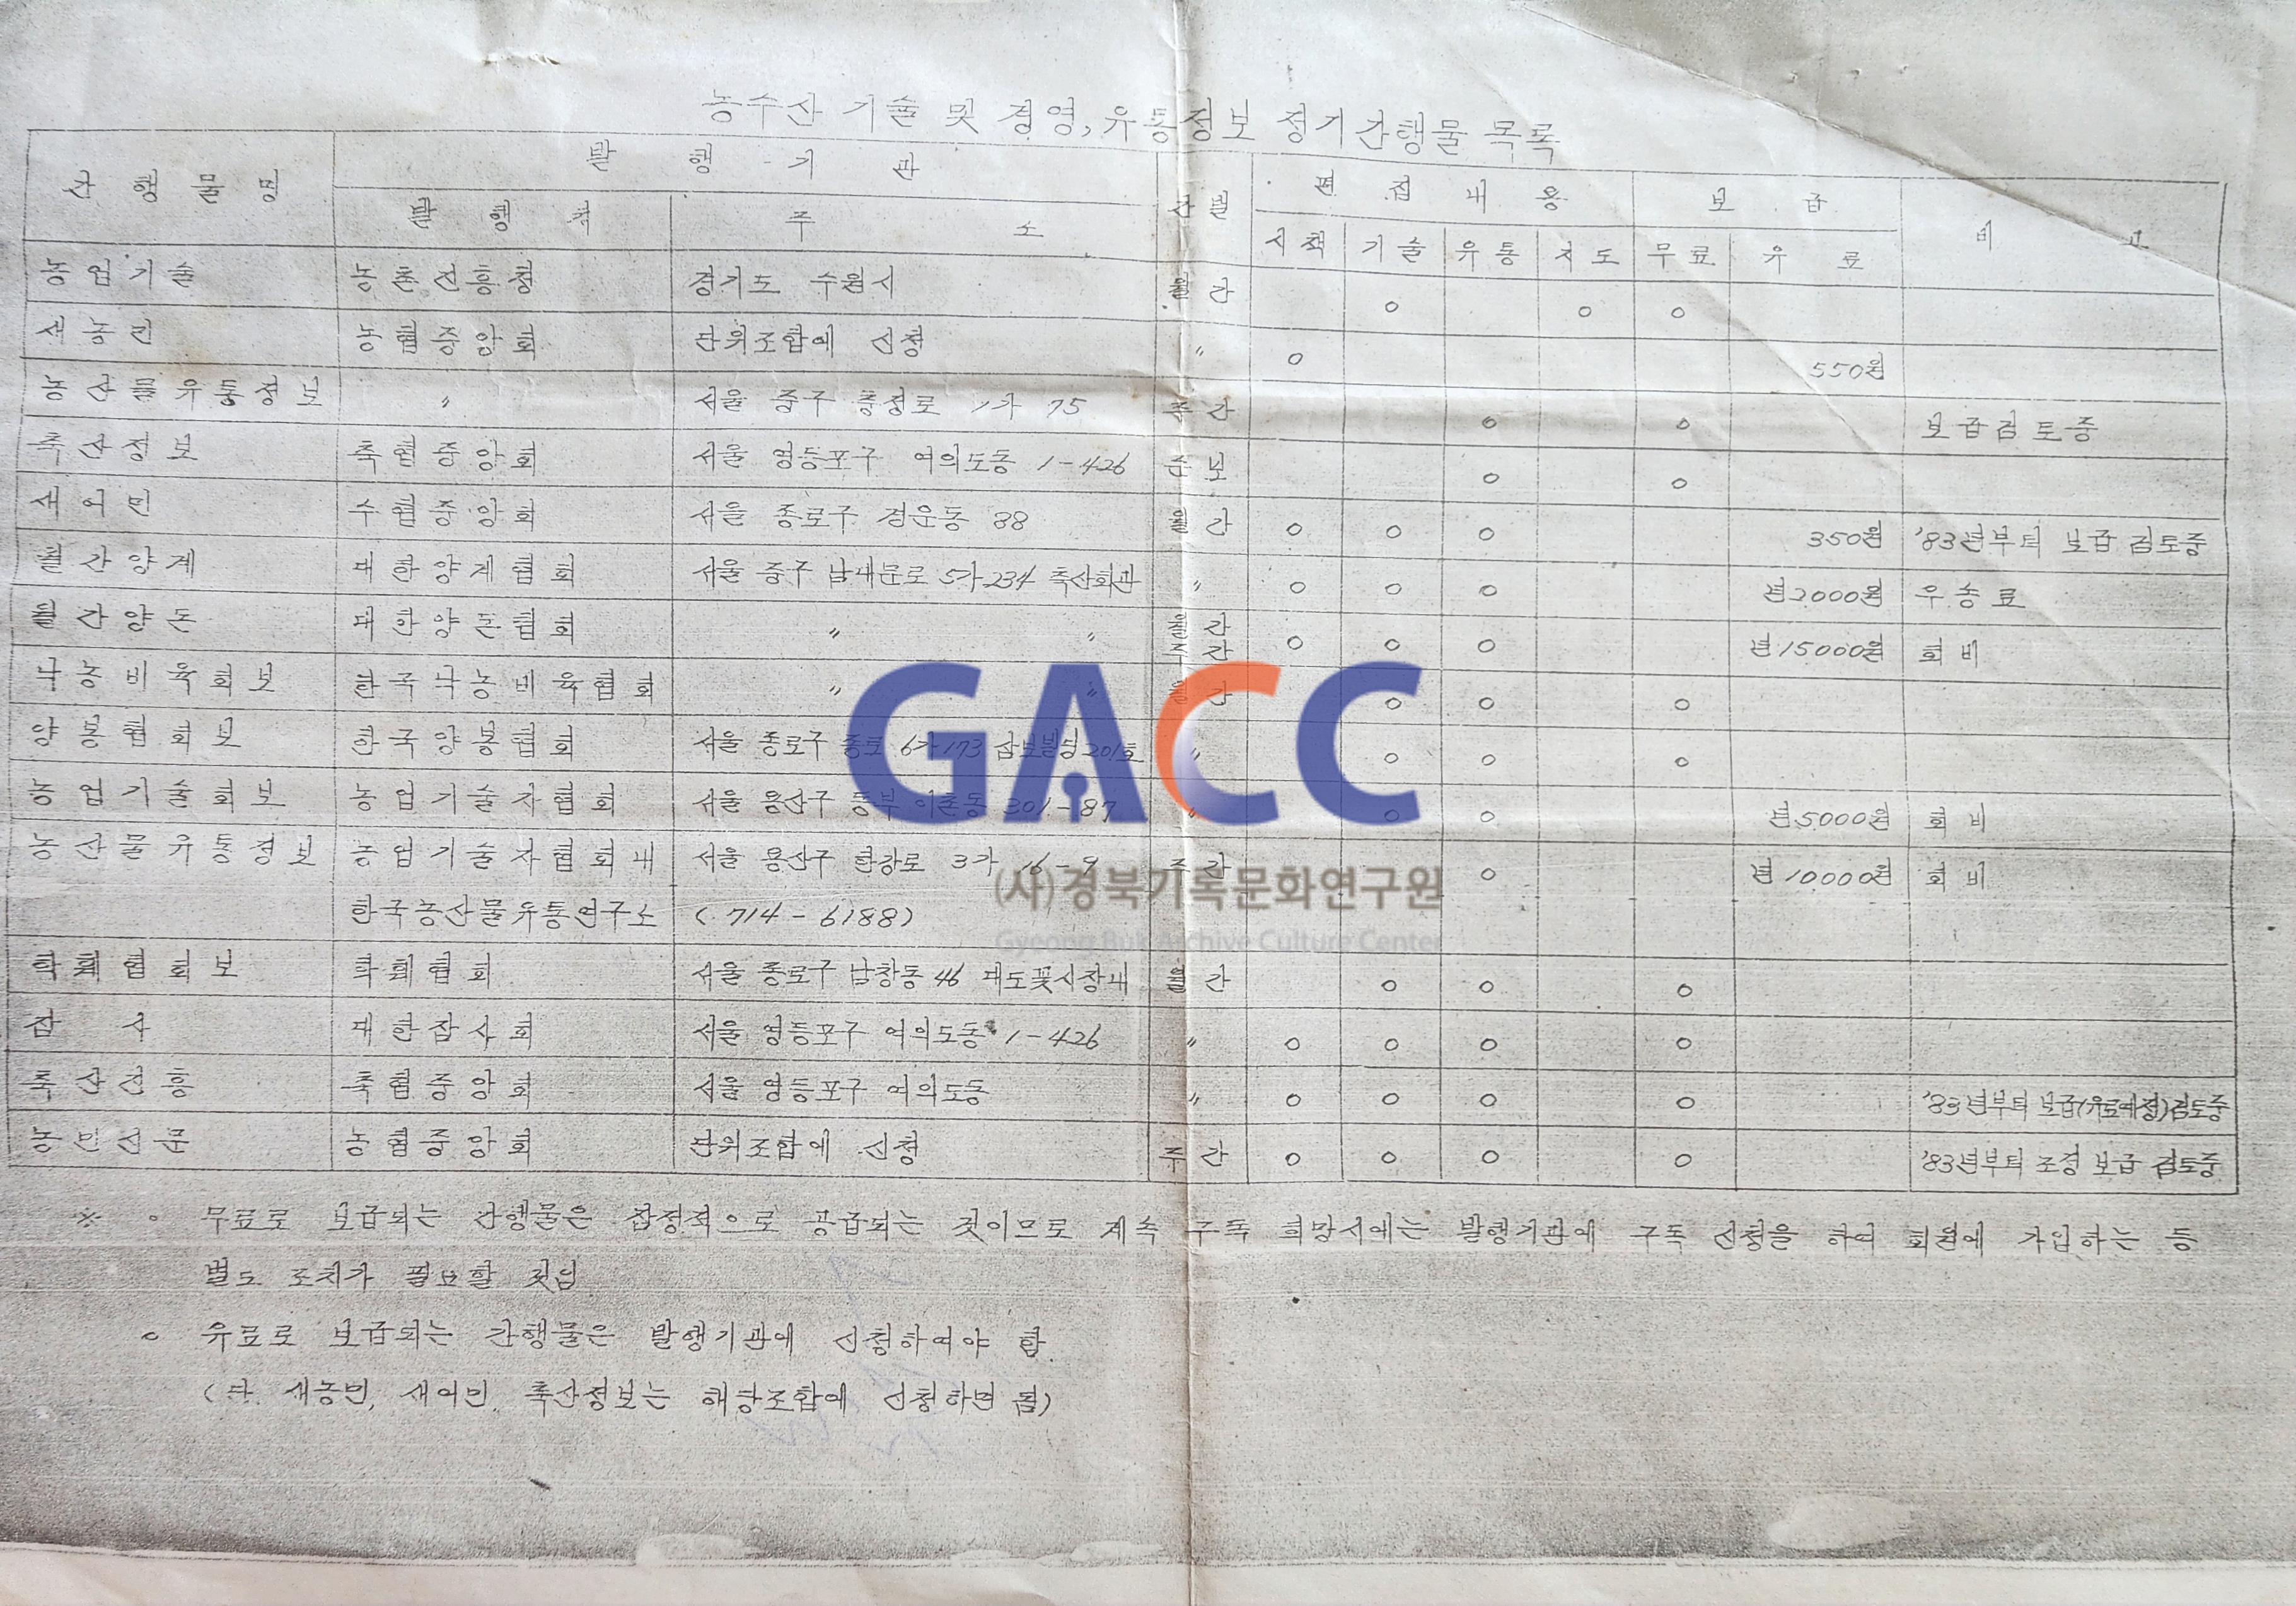 농수산 기술 및 경영, 유통정보 정기간행물 목록
간행물명 발행기관 간별 편집내용 보급 비고
발행처 주소 시책 기술 유통 지도 무료 유료
농업기술 농촌진흥청 경기도 수원시 월간 ○ ○ ○
새농민 농협중앙회 단위조합에 신청 〃 ○ 550원
농산물유통정보 〃 서울 중구 충정로 1가 75 주간 ○ ○ 보급검토중
축산정보 축협중앙회 서울 영등포구 여의도동 1-426 순보 ○ ○
새어민 수협중앙회 서울 종로구 경운동 88 월간 ○ ○ ○ 350원 '83년부터 보급 검토중
월간양계 대한양계협회 서울 중구 남대문로 5가 234 축산회관 〃 ○ ○ ○ 년2000원 우송료
월간양돈 대한양돈협회 〃 〃 월간 주간 ○ ○ ○ 년15000원 회비
낙농비육회보 한국낙농비육협회 〃 〃 월간 ○ ○ ○
양봉협회보 한국양봉협회 서울 종로구 종로 6가 173 삼보빌딩 201호 〃 ○ ○ ○
농업기술회보 농업기술자협회 서울 용산구 동부 이촌동 301-87 〃 ○ ○ 년5000원 회비
농산물유통정보 농업기술자협회내 서울 용산구 한강로 3가 16-9 주간 ○ 년10000원 회비
한국농산물유통연구소 (714-6188)
협회보 협회 서울 종로구 남창동 46 대도꽃시장내 월간 ○ ○ ○
잠사 대한잠사회 서울 영등포구 여의도동 1-426 〃 ○ ○ ○ ○
축산진흥 축협중앙회 서울 영등포구 여의도동 〃 ○ ○ ○ ○ '83년부터 보급(유료예정)검토중
농민신문 농협중앙회 단위조합에 신청 주간 ○ ○ ○ ○ '83년부터 조정 보급 검토중
※ ○ 무료로 보급되는 간행물은 잠정적으로 공급되는 것이므로 계속 구독 희망시에는 발행기관에 구독 신청을 하여 회원에 가입하는 등
별도 조치가 필요할 것임
○ 유료로 보급되는 간행물은 발행기관에 신청하여야 함.
(단. 새농민, 새어민, 축산정보는 해당조합에 신청하면 됨)
GACC
(사)경북기록문화연구원
Gyeong Buk Archive Culture Center